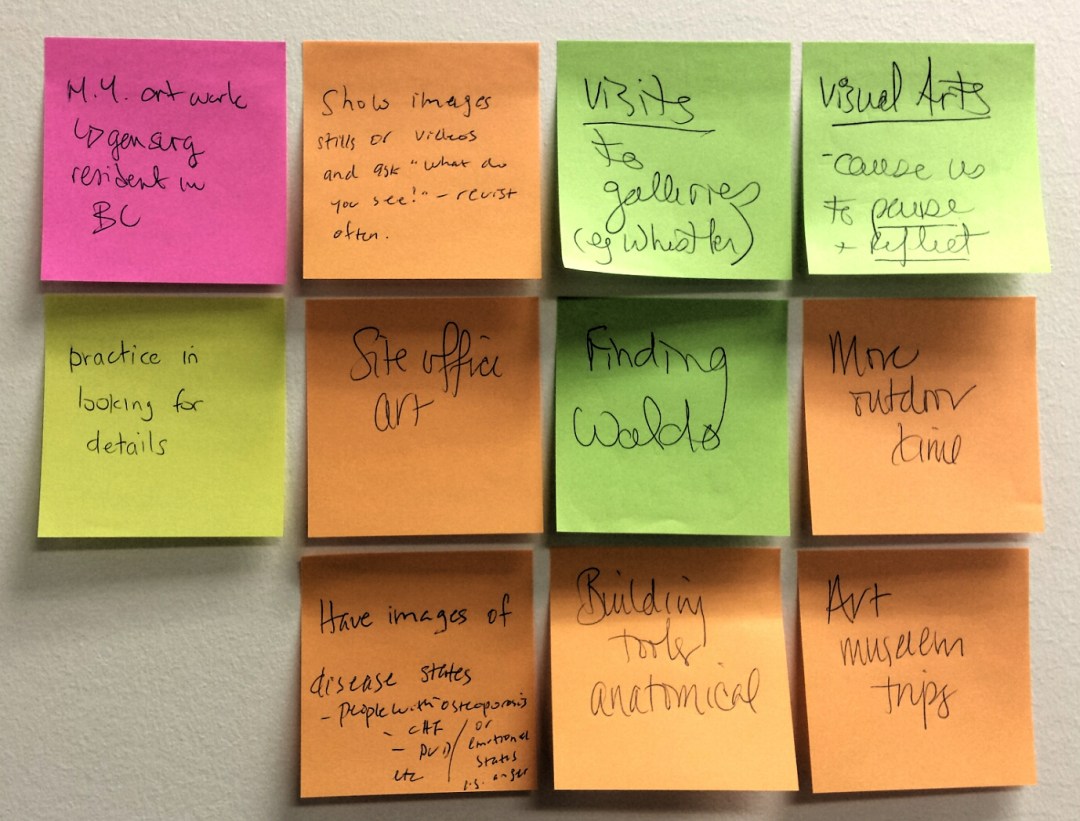 M.Y. art work
↳ gen surg
resident in
BC
Show images
stills or videos
and ask "what do
you see!" - revist
often.
Visits
to
galleries
(eg Whistler)
Visual Arts
- cause us
to pause
+ reflect
practice in
looking for
details
Site office
art
Finding
Waldo
More
outdoor
time
Have images of
disease states
- people with osteoporosis
- CHF
- PVD
etc
/ or
emotional
states
i.g. anger
Building
tools
anatomical
Art
museum
trips